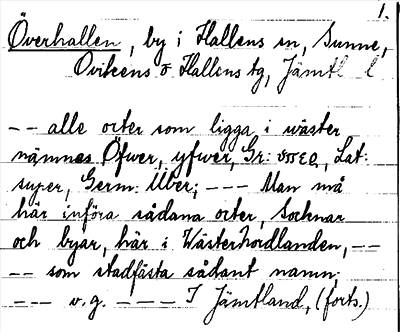 1.
Överhallen, by i Hallens sn, Sunne,
Ovikens o Hallens tg, Jämtl l
-- alle orter som ligga i wäster
nämnas Öfwer, yfwer, Gr: υπερ, Lat:
super, Germ: Über; --- Man må
här införa sådana orter, Socknar
och byar, här i Wästerhordlanden, --
-- som stadfästa sådant namn;
--- v.g. --- I Jämtland, (forts.)